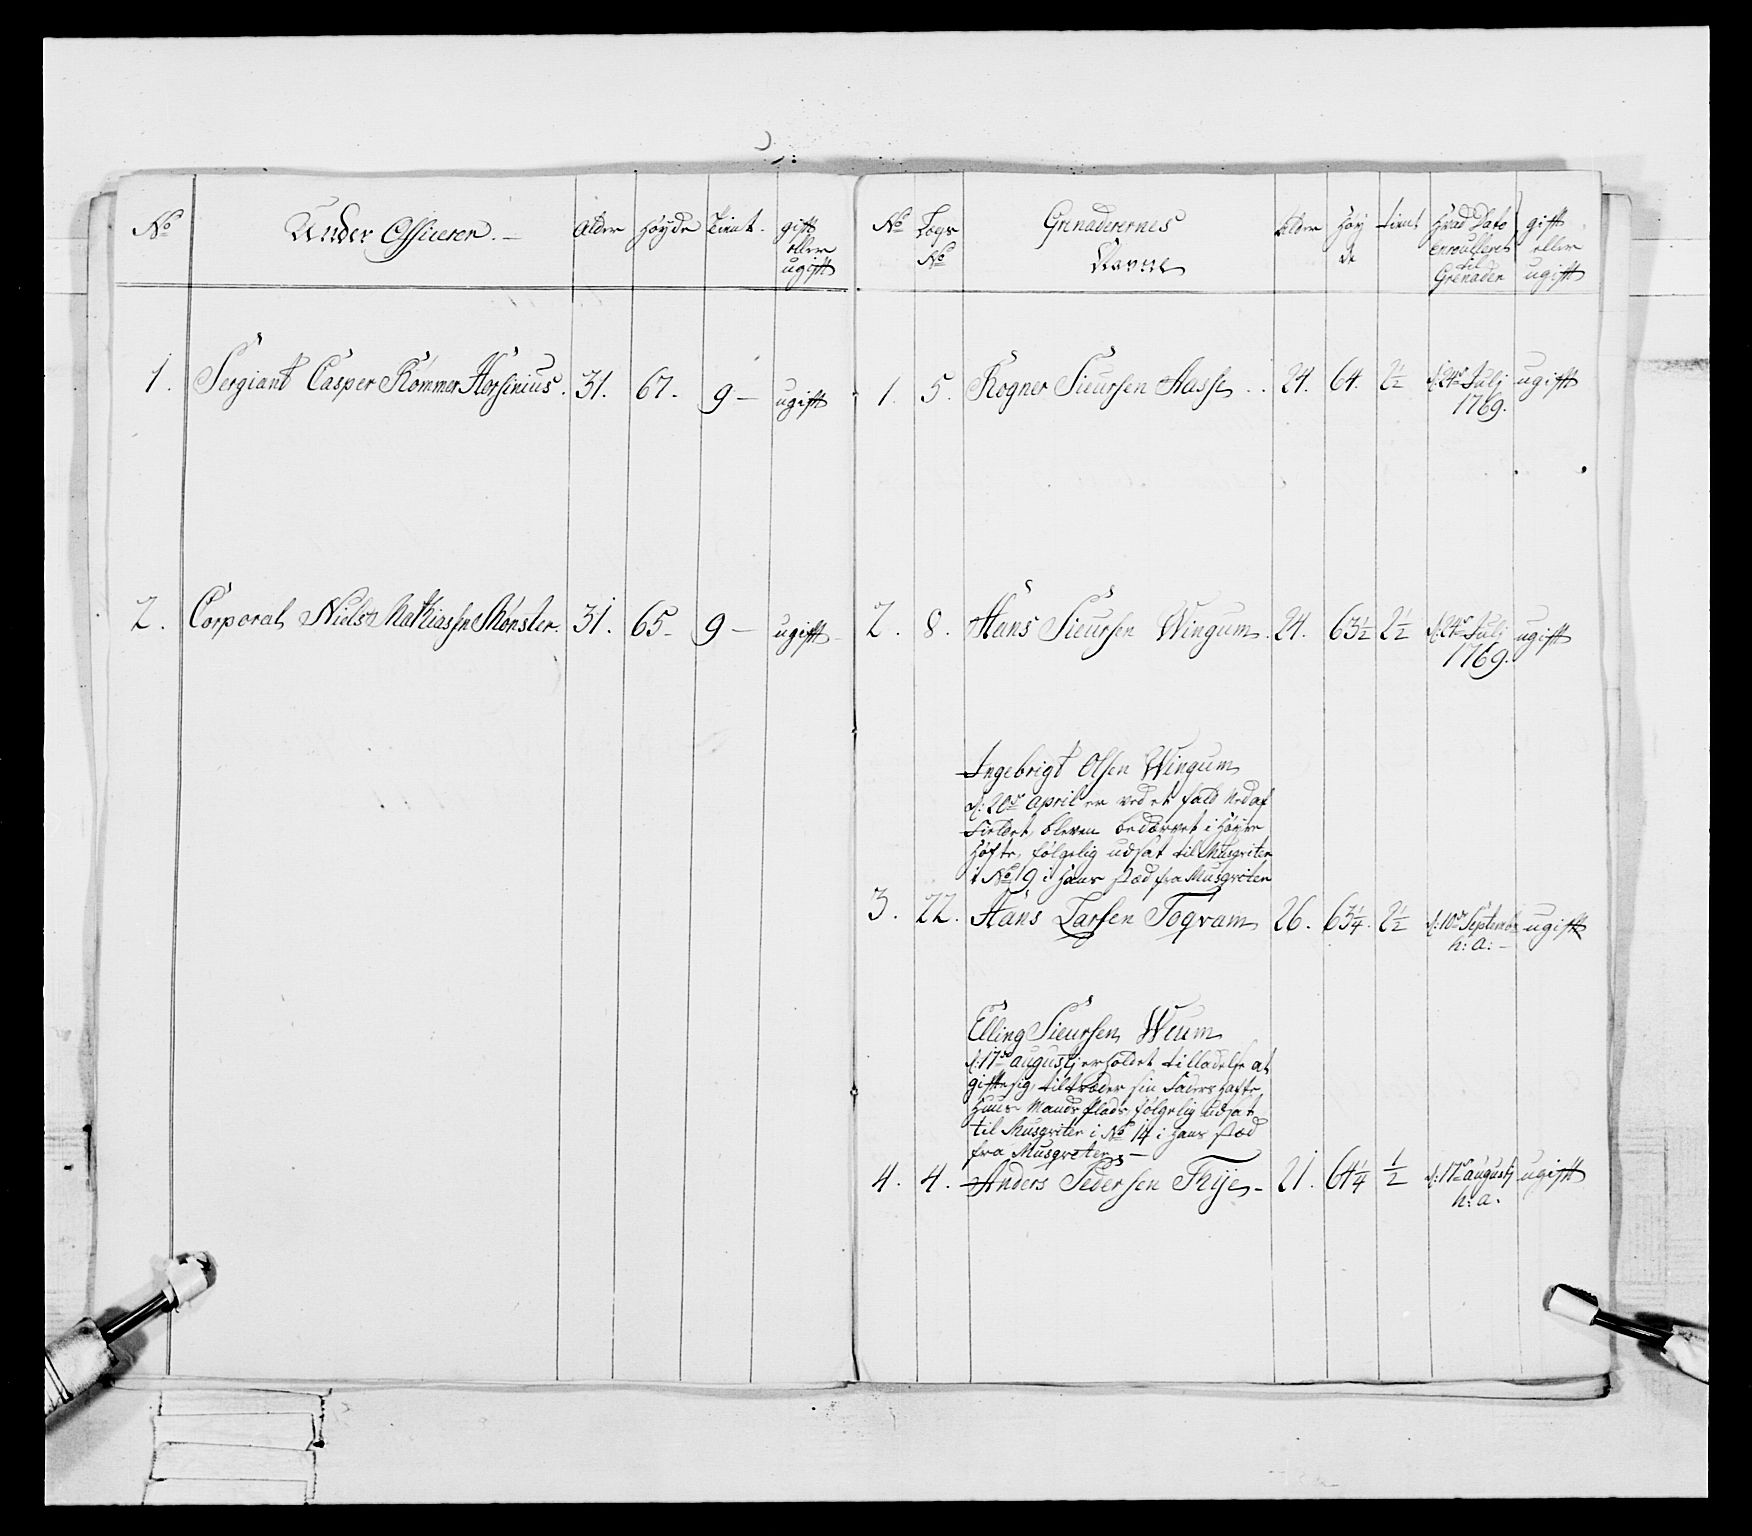 No Under Officerer. Alder Høyde Tient. gift eller ugift
1. Sergiant Casper Rømmer Horsinius. 31. 67. 9 – ugift
2. Corporal Niels Mathiassen Mønster. 31. 65 – 9 – ugift
No Lægs No Grenaderernes Navne Alder Høyde tient Hvad Dato enroulleret til Grenader gift eller ugift
1. 5. Rogner Sieursen Aasse 24. 64. 2½ d: 24de Julj 1769. ugift
2. 8. Hans Sieursen Wingum. 24. 63½ 2½ d: 24de Julj 1769. ugift
Ingebrigt Olsen Wingum
d: 20de April er ved et fald Ned af
Fieldet, bleven bedærvet i Høyre
Høfte, følgelig udsat til Musqviter
i No 9 i Hans stæd fra Musqvoter
3. 22. Hans Larsen Togvam 26. 63¼. 2½ d: 10de Septembr h: a: – ugift
Elling Sieursen Weum
d: 17de augustj erholdet tilladelse at
gifte sig, tiltræder sin Faders hafte
Huus Mands Plads følgelig udsat
til Musqviter i No 14 i Hans stæd
fra Musqvoter –
4. 4. Anders Pedersen Thije – 21. 64¼ ½ d: 17de augustj h: a. ugift